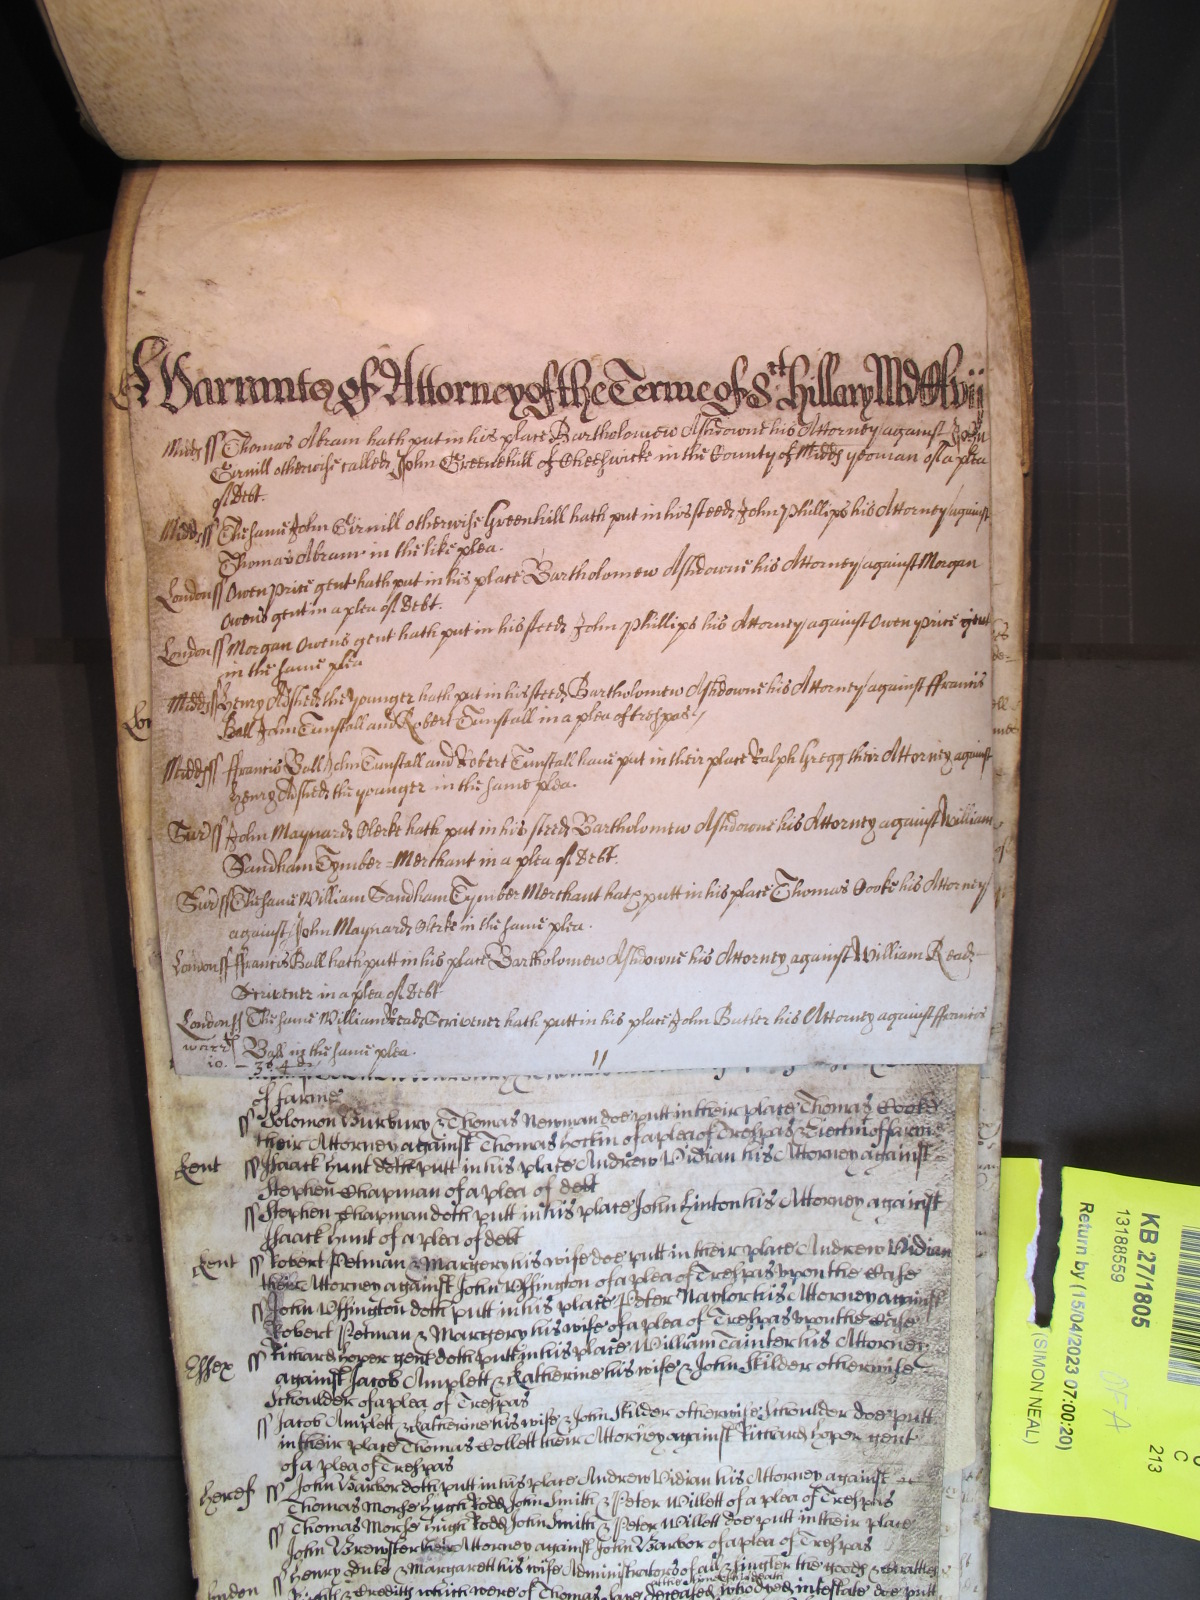 Warrants of Attorney of the Terme of St. Hillary MDClvii
Midds ss Thomas Abram hath put in his place Bartholomew Ashdowne his Attorney against John
Girnill otherwise called John Greenehill of Cheeswicke in the County of Midds yeoman of a plea
of Debt.
Midds ss The same John Girnill otherwise Greenhill hath put in his steed John Phillips his Attorney against
Thomas Abram in the like plea.
London ss Owen Price gent hath put in his place Bartholomew Ashdowne his Attorney against Morgan
Owens gent in a plea of Debt.
London ss Morgan Owens gent hath put in his steed John Phillips his Attorney against Owen Price gent
in the same plea
Midds ss Henry Aldshed the younger hath put in his steed Bartholomew Ashdowne his Attorney against ffrancis
Ball John Tunstall and Robert Tunstall in a plea of trespas
Midds ss ffrancis Ball John Tunstall and Robert Tunstall haue put in their place Ralph Gregg their Attorney against
Henry Aldshed the younger in the same plea.
Surr ss John Maynard Clerke hath put in his steed Bartholomew Ashdowne his Attorney against William
Sandham Tymber=Merchant in a plea of Debt.
Surr ss The same William Sandham Tymber Merchant hath putt in his place Thomas Cooke his Attorney
against John Maynard Clerke in the same plea.
London ss ffrancis Ball hath putt in his place Bartholomew Ashdowne his Attorney against William Read
Scrivener in a plea of Debt
London ss The same William Read Scrivener hath putt in his place John Butler his Attorney against ffrancis
Ball in the same plea.
warr
10. - 3s 4d
11
of farme
ss Solomon Burbury & Thomas Newman doe putt in their place Thomas Cooke
their Attorney against Thomas Hockin of a plea of Trespas & Eiectm of farme
Kent ss Isaack Hunt doth putt in his place Andrew Vidian his Attorney against
Stephen Chapman of a plea of debt
ss Stephen Chapman doth putt in his place John Linton his Attorney against
Isaack Hunt of a plea of debt
Kent ss Robert Petman & Margery his wife doe putt in their place Andrew Vidian
their Attorney against John Uffington of a plea of Trespas vpon the Case
ss John Uffington doth putt in his place Peter Naylor his Attorney against
Robert Petman & Margery his wife of a plea of Trespas vpon the Case
Essex ss Richard Hoper gent doth putt in his place William Tainter his Attorney
against Jacob Amplett & Katherine his wife & John Skilder otherwise
Shoulder of a plea of Trespas
ss Jacob Amplett & Katherine his wife & John Skilder otherwise Shoulder doe putt
in their place Thomas Collett their Attorney against Richard Hoper gent
of a plea of Trespas
heref ss John Barbor doth putt in his place Andrew Vidian his Attorney against
Thomas Morse Hugh Rodd John Smith & Peter Willett of a plea of Trespas
ss Thomas Morse Hugh Rodd John Smith & Peter Willett doe putt in their place
John Brewster their Attorney against John Barbor of a plea of Trespas
ss Henry Duke & Margarett his wife Administrators of all & singler the goods & chattles
London Rights & Creditts which were of Thomas deceased who dyed intestate doe putt
KB 27/1805
13188559
Return by (15/04/2023 07:00:20)
(SIMON NEAL)
OFA
C
213